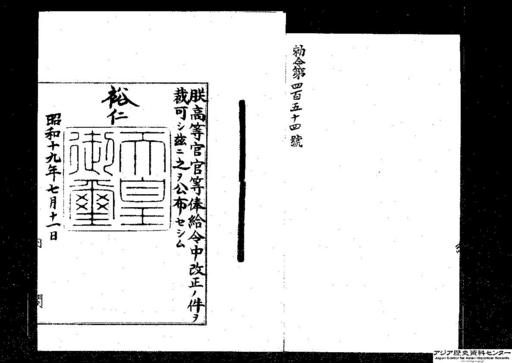 勅令第四百五十四號
朕高等官官等俸給令中改正ノ件ヲ
裁可シ茲ニ之ヲ公布セシム
裕仁
天皇御璽
昭和十九年七月十一日
内閣
アジア歴史資料センター
Japan Center for Asian Historical Records